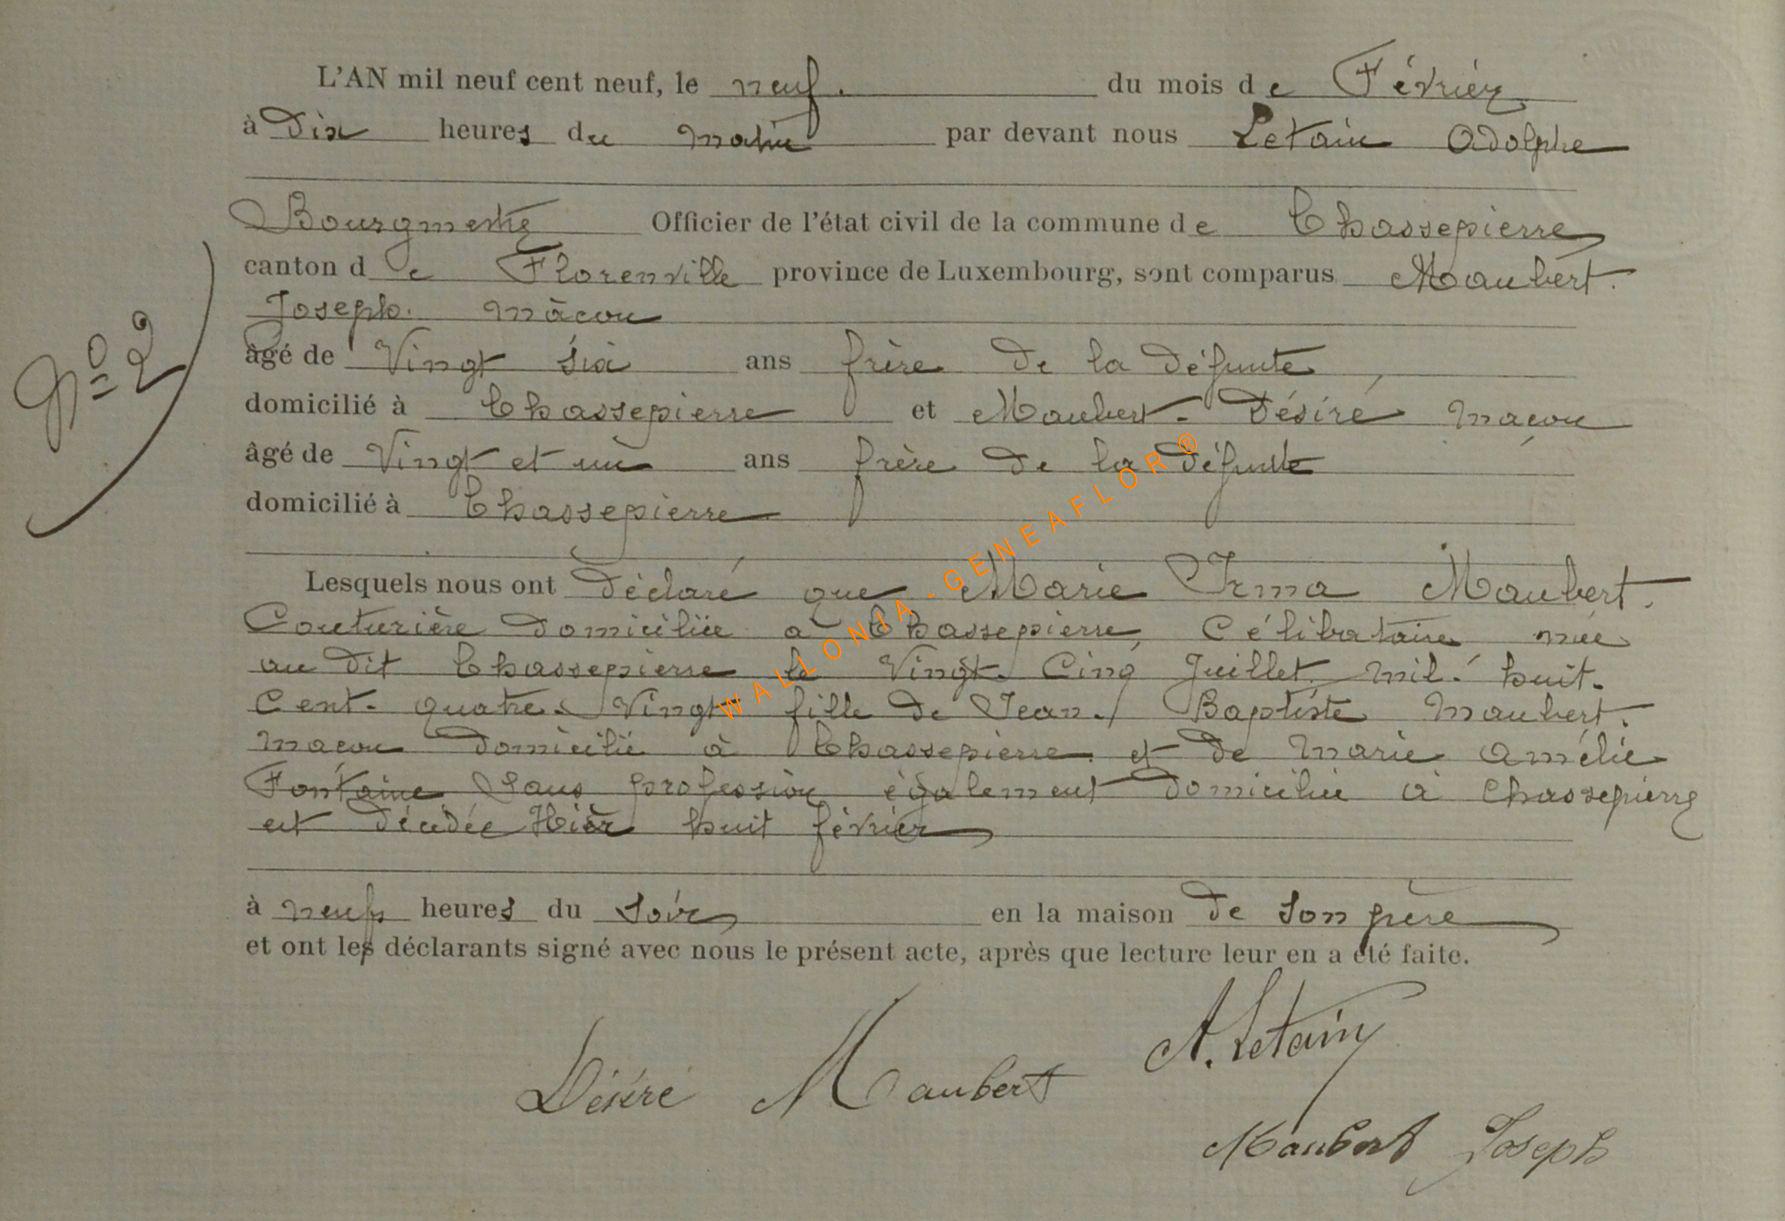 L'AN mil neuf cent neuf, le neuf. du mois de Février
à Dix heures du matin par devant nous Letain Adolphe
Bourgmestre Officier de l'état civil de la commune de Chassepierre
canton de Florenville province de Luxembourg, sont comparus Maubert.
Joseph. maçon
âgé de Vingt six ans frère de la défunte
Nº 2
domicilié à Chassepierre et Maubert. Désiré maçon
âgé de Vingt et un ans frère de la défunte
domicilié à Chassepierre
Lesquels nous ont déclaré que Marie Irma Maubert.
Couturière domiciliée à Chassepierre Célibataire née
au dit Chassepierre le Vingt. Cinq Juillet mil. huit.
Cent. quatre. Vingt fille de Jean. Baptiste Maubert.
maçon domicilié à Chassepierre et de Marie Amélie
Fontaine Sans profession également domiciliée à Chassepierre
est décédée Hier huit février
à neuf heures du soir en la maison de son père
et ont les déclarants signé avec nous le présent acte, après que lecture leur en a été faite.
A. Letain
Désiré Maubert
Maubert Joseph
WALLONIA-GENEAFLOR®